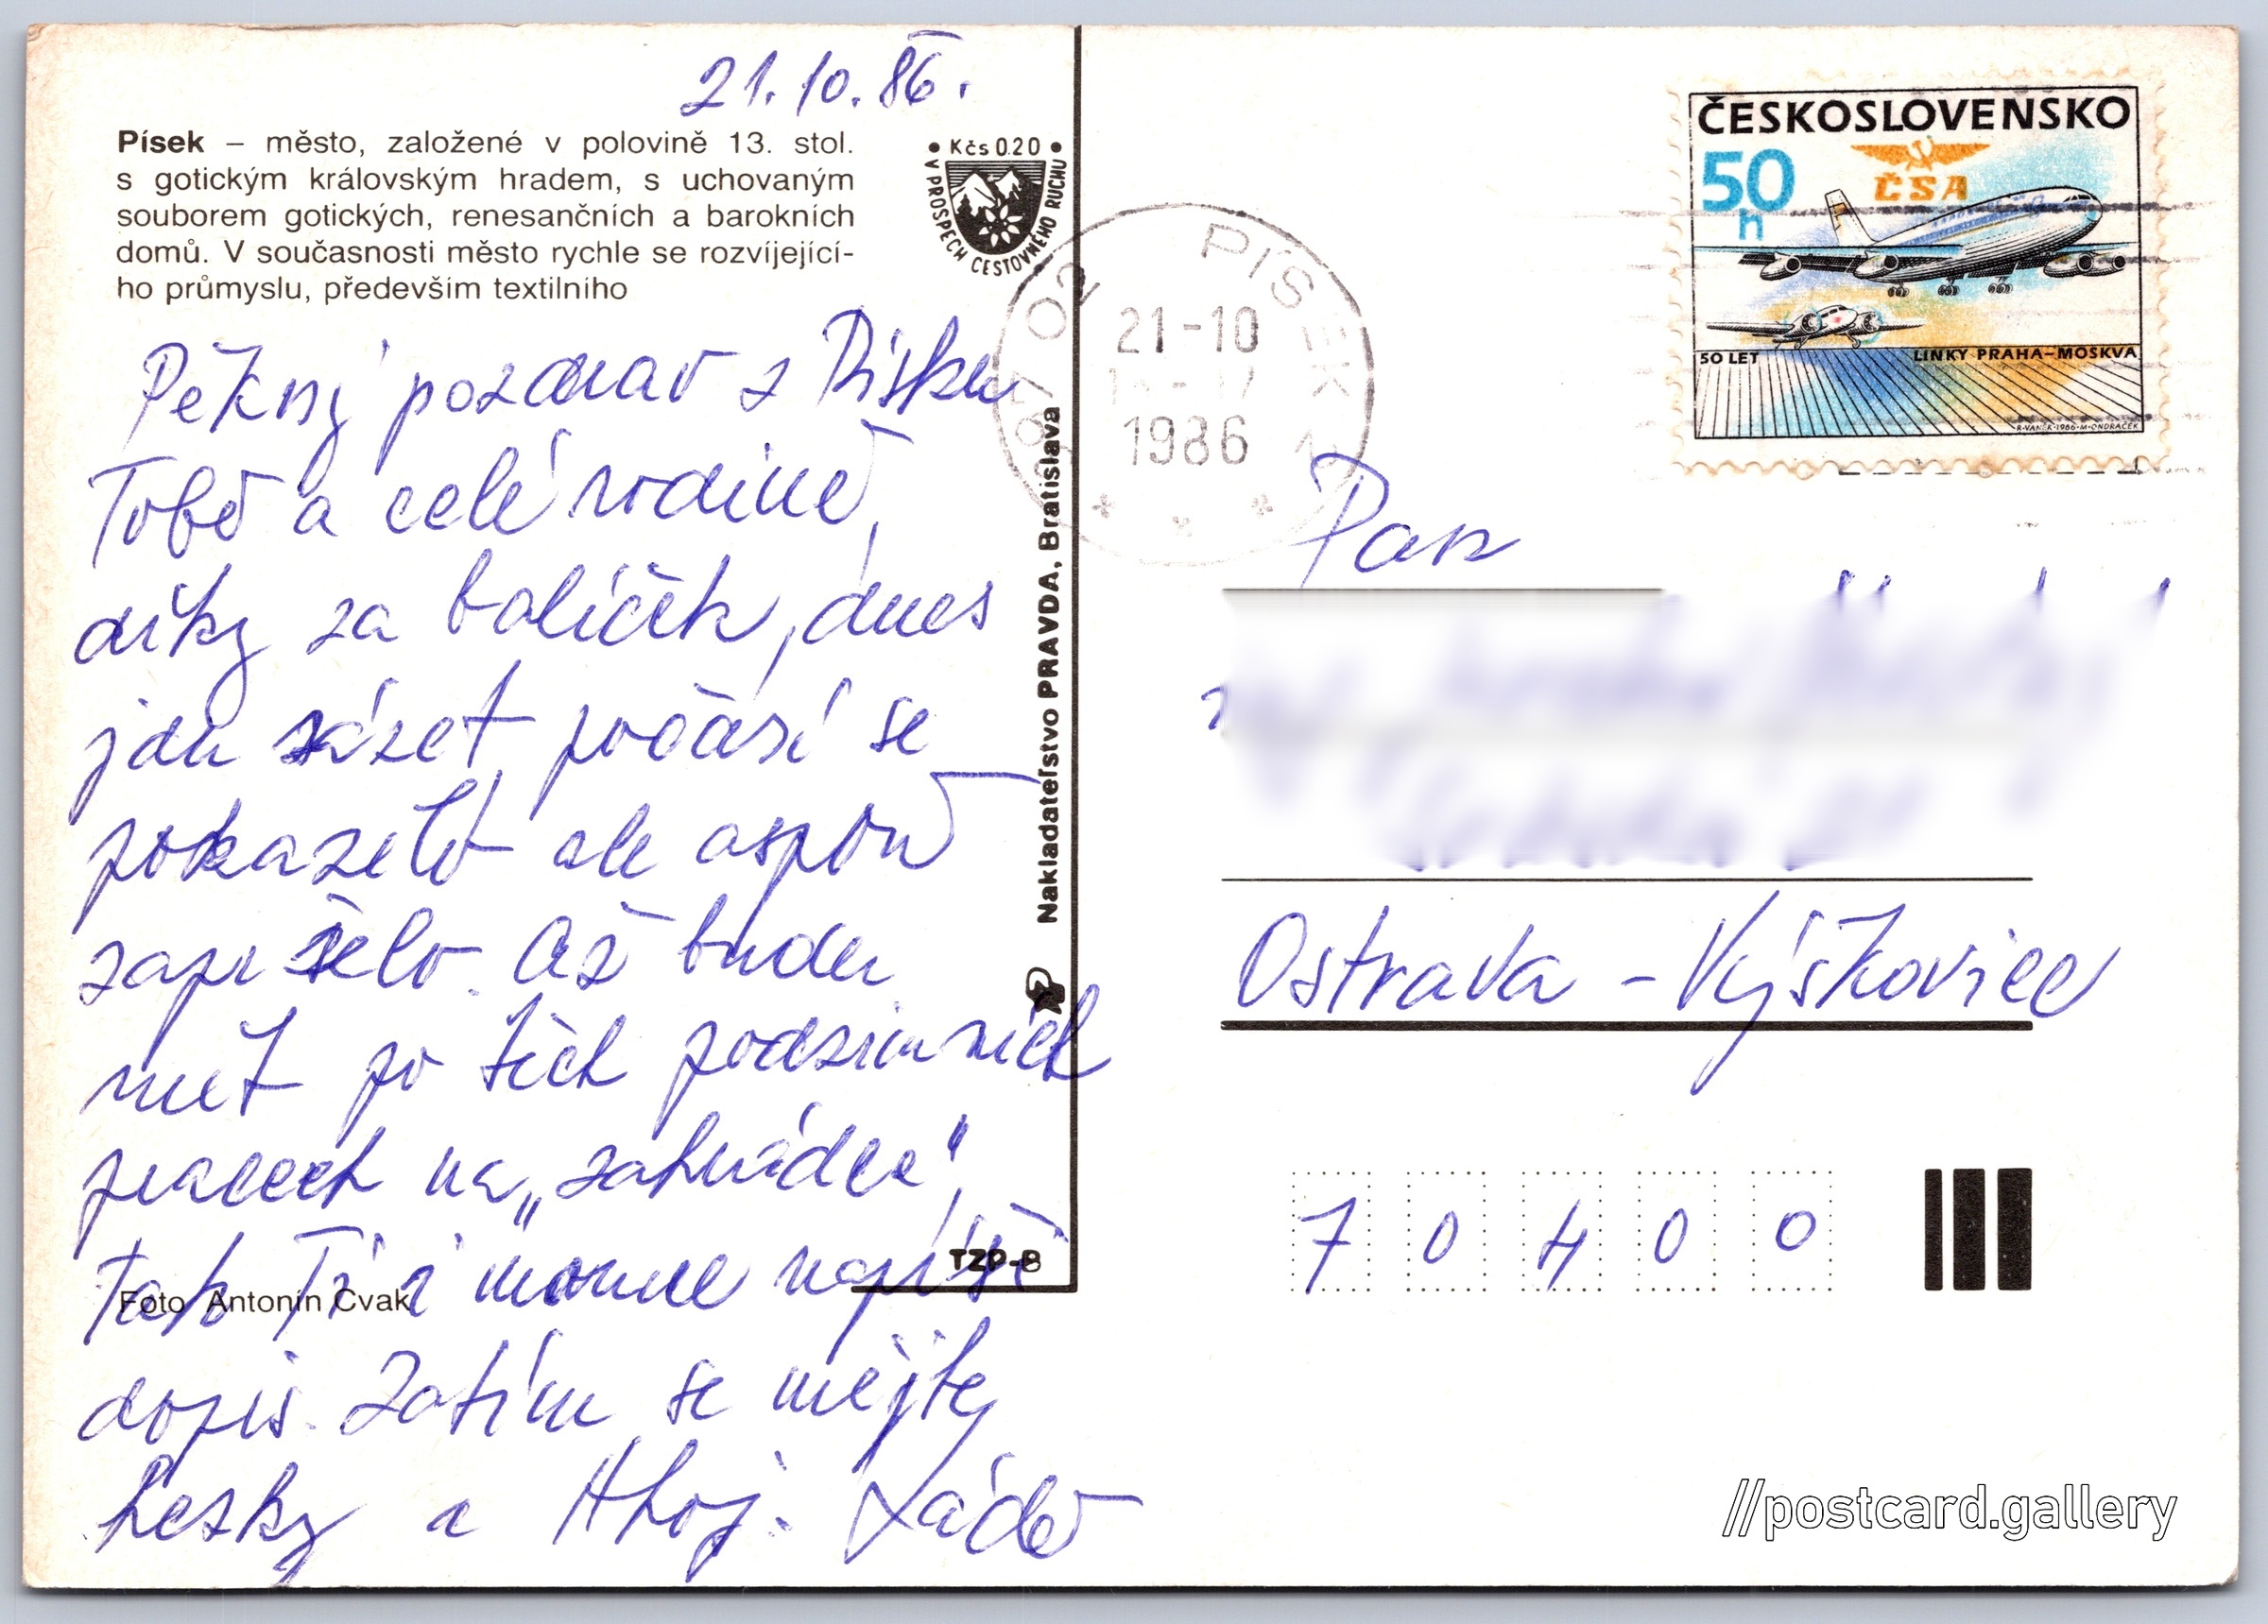 21.10.86.
Písek – město, založené v polovině 13. stol.
s gotickým královským hradem, s uchovaným
souborem gotických, renesančních a barokních
domů. V současnosti město rychle se rozvíjející-
ho průmyslu, především textilního
• Kčs 0.20 •
V PROSPĚCH CESTOVNÉHO RUCHU
Pěkný pozdrav z Písku
Tobě a celé rodině,
díky za balíček, dnes
jdu sázet, počasí se
pokazilo ale aspoň
zapršelo. Až budu
mít po těch podzimních
pracech na „zahrádce",
tak Ti i napíši
dopis. Zatím se mějte
hezky a Ahoj.
Foto Antonín Cvak
TZP-B
Nakladateľstvo PRAVDA, Bratislava
PÍSEK 1
397 02
21-10
1986
ČESKOSLOVENSKO
50 h
ČSA
50 LET LINKY PRAHA–MOSKVA
R·VANĚK·1986·M·ONDRÁČEK
Pan
Ostrava – Výškovice
7 0 4 0 0
//postcard.gallery